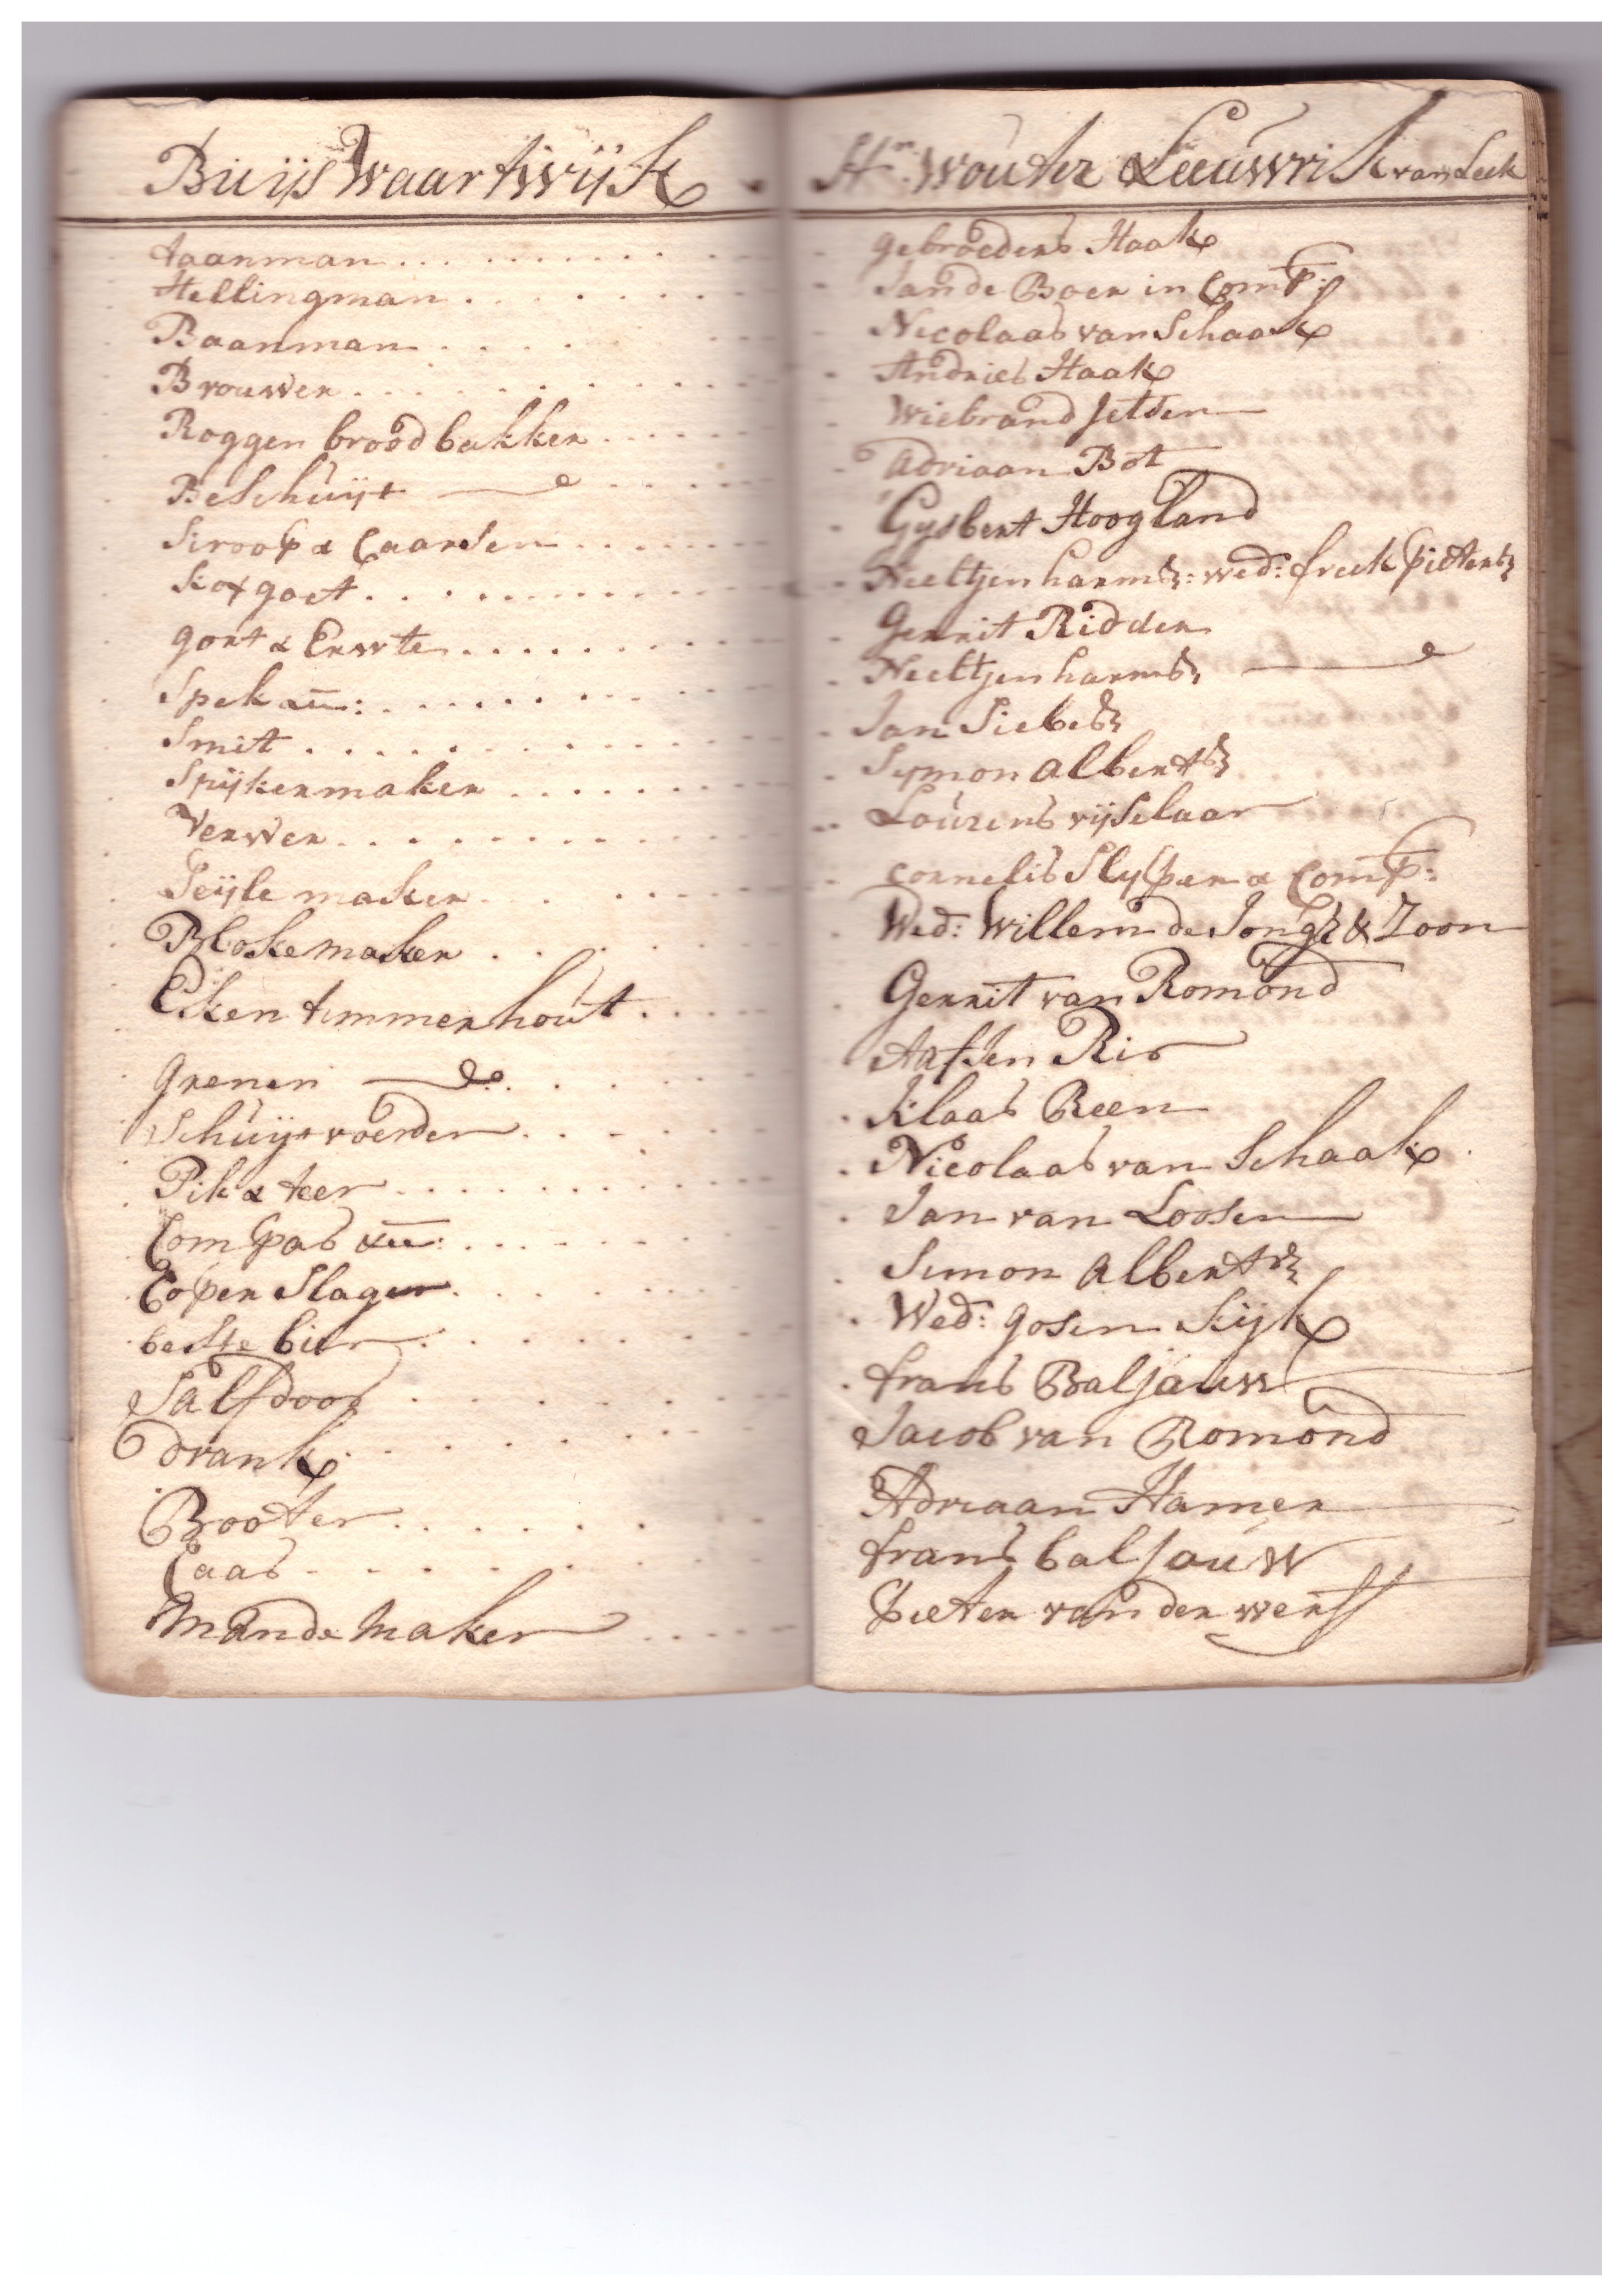 Buijs Waartwijk
taanman
Hellingman
Baanman
Brouwer
Roggen brood bakker
Beschuijt
Siroop & Caarsen
Kofgoet
gort & Erwte
Spek &c:
Smit
Spijkermaker
Verwer
Seijlemaker
Blokemaker
Eken timmerhout
grenen do
Schuijtvoerder
Pik & teer
Compas &c:
Coperslager
beste bier
Salfdoos
drank
Booter
Caas
Mandemaker
Hr. Wouter Leeuwrik van Leek
gebroeders Haak
Jan de Boer in Comp:
Nicolaas van Schaak
Andries Haak
Wiebrand Jelden
Adriaan Bot
Gysbert Hoogland
Neeltjen harms: wed: freek Pieters
Gerrit Ridder
Neeltjen harms
Jan Siebes
Symon Alberts
Lourens rijselaar
Cornelis Slyper & Comp:
Wed: Willem de Jongh & Zoon
Gerrit van Romond
Aafjen Ris
Klaas Reen
Nicolaas van Schaak
Jan van Loosen
Simon Alberts
Wed: gosen Kijk
frans Baljauw
Jacob van Romond
Adriaan Hamer
frans baljauw
Pieter van der werff